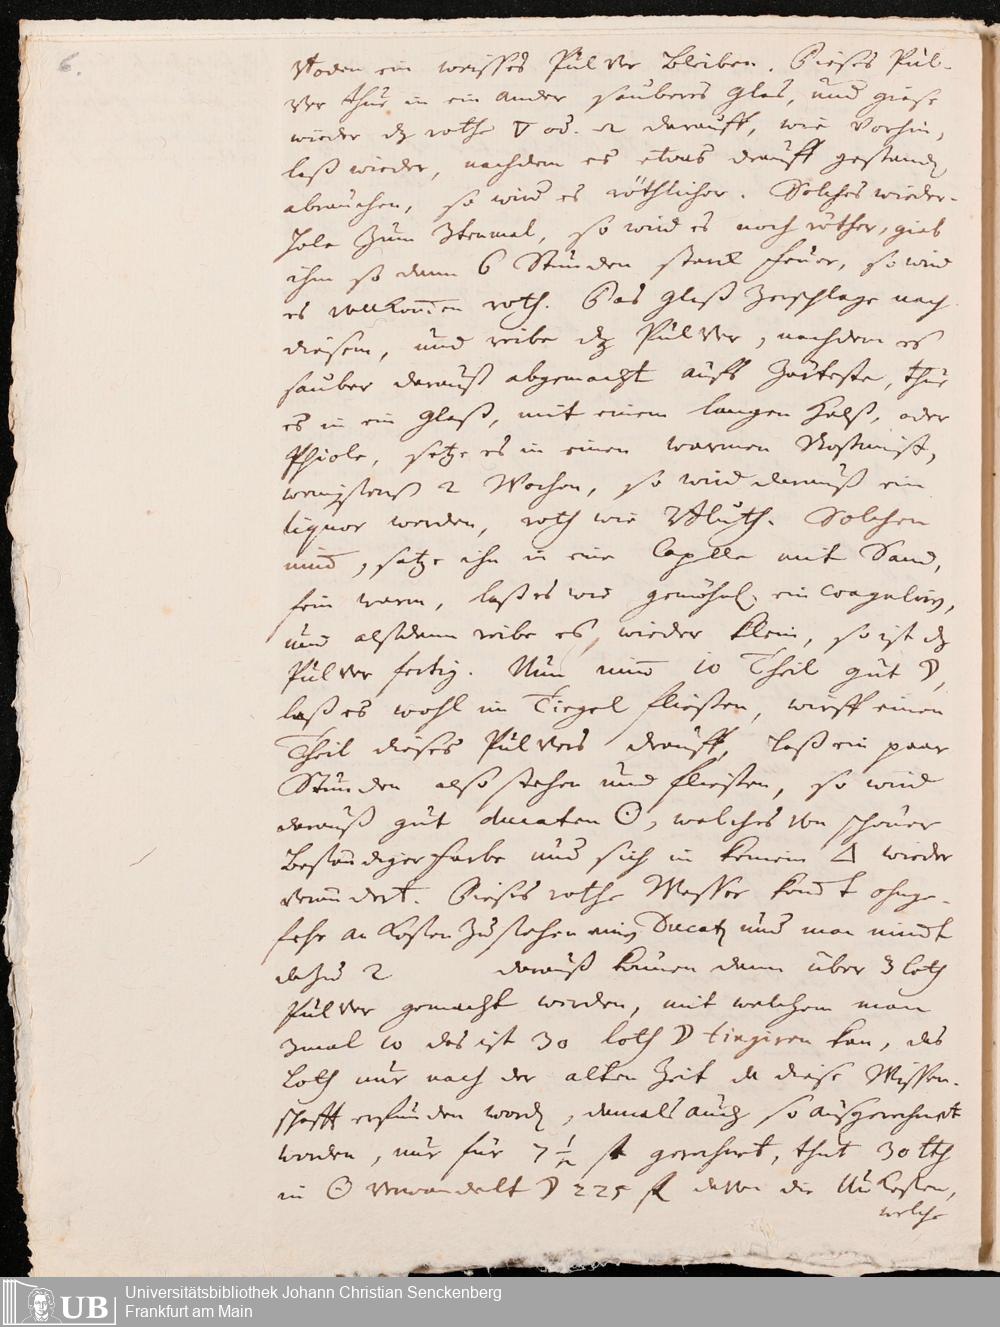 6.
Boden ein weisses Pulver bleiben. Dieses Pul-
ver thue in ein ander sauberes Glas, und giese
wieder dz rothe ▽ od. darauff, wie vorhin,
laß wieder, nachdem es etwas drauff gestanden
abrauchen, so wird es röthlicher. Solches wieder-
hole zum 3tenmal, so wird es noch röther, gieb
ihm so dann 6 Stunden starck feuer, so wird
es vollkom̅en roth. Das Glaß zerschlage nach
diesem, und reibe dz Pulver, nachdem es
sauber darauß abgemacht aufs zärteste, thue
es in ein Glaß, mit einem langen Halß, oder
Phiole, setze es in einen warmen Roßmist,
wenigstens 2 Wochen, so wird darauß ein
liquor werden, roth wie Bluth. Solchen
nim̅, setze ihn in eine Capelle mit Sand,
fein warm, laß es wie ein
und alßdann reibe es, wieder klein, so ist dz
Pulver fertig. Nun nim̅ 10 Theil gut ☽,
laß es wohl im Tiegel fliessen, wirff einen
Theil dieses Pulvers drauff, laß ein paar
Stunden also stehen und fliessen, so wird
darauß gut ducaten ☉, welches von
Beständiger farbe und sich in keinem △ wieder
verändert. Dieses rothe Wasser kom̅t ohnge-
fehr an Kosten zu stehen Ducat und man nim̅t
dazu 2 darauß können dann über 3 loth
Pulver gemacht werden, mit welchem man
3mal 10 das ist 30 loth ☽ tingiren kan, das
Loth nur nach der alten Zeit da diese Wissen-
schafft erfunden worden, damals auch so ausgerechnet
worden, nur für 7 1/2 fl gerechnet, thut 30 lth
in ☉ verwandelt ☽ 225 fl davon die Unkosten,
welche
UB
Universitätsbibliothek Johann Christian Senckenberg
Frankfurt am Main